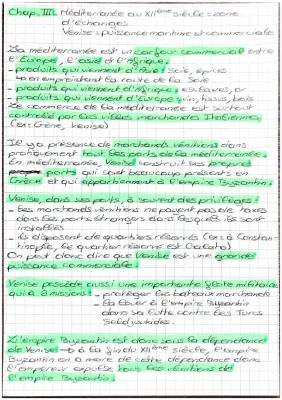 Chap. III. Méditerranée au XIIème siècle : zone
d'échanges
Venise : puissance maritime et commerciale
La méditerranée est un carfour commercial entre
l'Europe, l'asie et l'Afrique.
- produits qui viennent d'Asie : Soie, épices
en empreintant la route de la Soie
- produits qui viennent d'Afrique : esclaves, or
- produits qui viennent d'Europe : vin, tissus, bois
Le commerce de la méditerranée est surtout
contrôlé par les villes marchandes Italiennes,
(ex : Gêne, Venise)
Il y a présence de marchands vénitiens dans
pratiquement tout les ports de la méditerranée.
En méditerranée, Venise construit ses propres
ports qui sont beaucoup présents en
Grèce et qui appartiennent à l'empire Byzantin.
Venise, dans ses ports, a souvent des privilèges :
- Les marchands vénitiens ne payent pas de taxes
dans les ports étrangers dans lesquels ils sont
installés
- ils disposent de quartiers réservés (ex : à Constan-
tinople, le quartier réservé est Galata)
On peut donc dire que Venise est une grande
puissance commerciale.
Venise possède aussi une importante flotte militaire
qui a 2 missions : - protéger les bateaux marchands
- de l'empire Byzantin
dans sa lutte contre les Turcs
Seldjoukides.
L'empire Byzantin est donc sous la dépendance
de Venise à la fin du XIIème siècle, l'empire
Byzantin en a marre de cette dépendance donc
l'empereur expulse tous les vénitiens de
l'empire Byzantin.